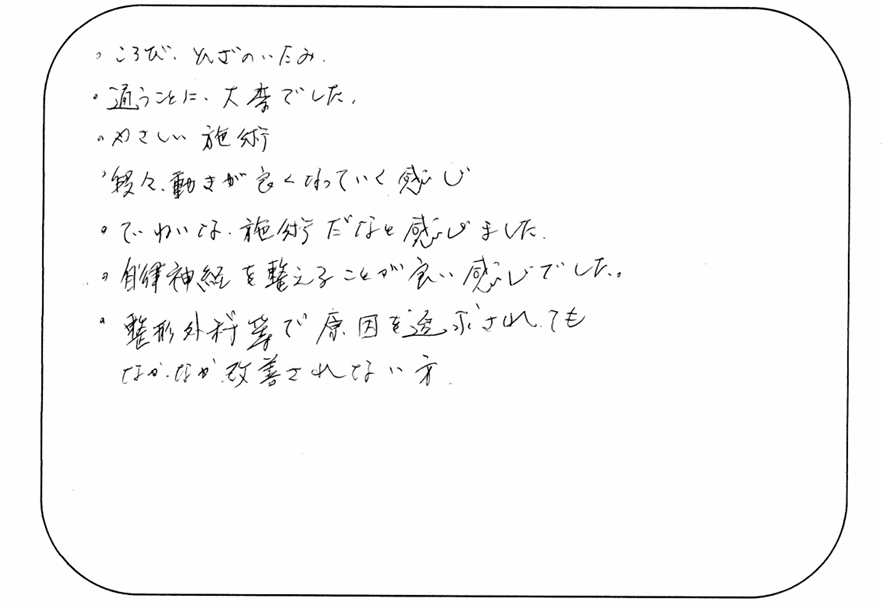 。ころび、ひざのいたみ.
。通うことに、大変でした。
。やさしい施術
、段々、動きが良くなっていく感じ
。ていねいな、施術だなと感じました.
。自律神経を整えることが良い感じでした。
。整形外科等で原因を追求されても
なかなか改善されない方.